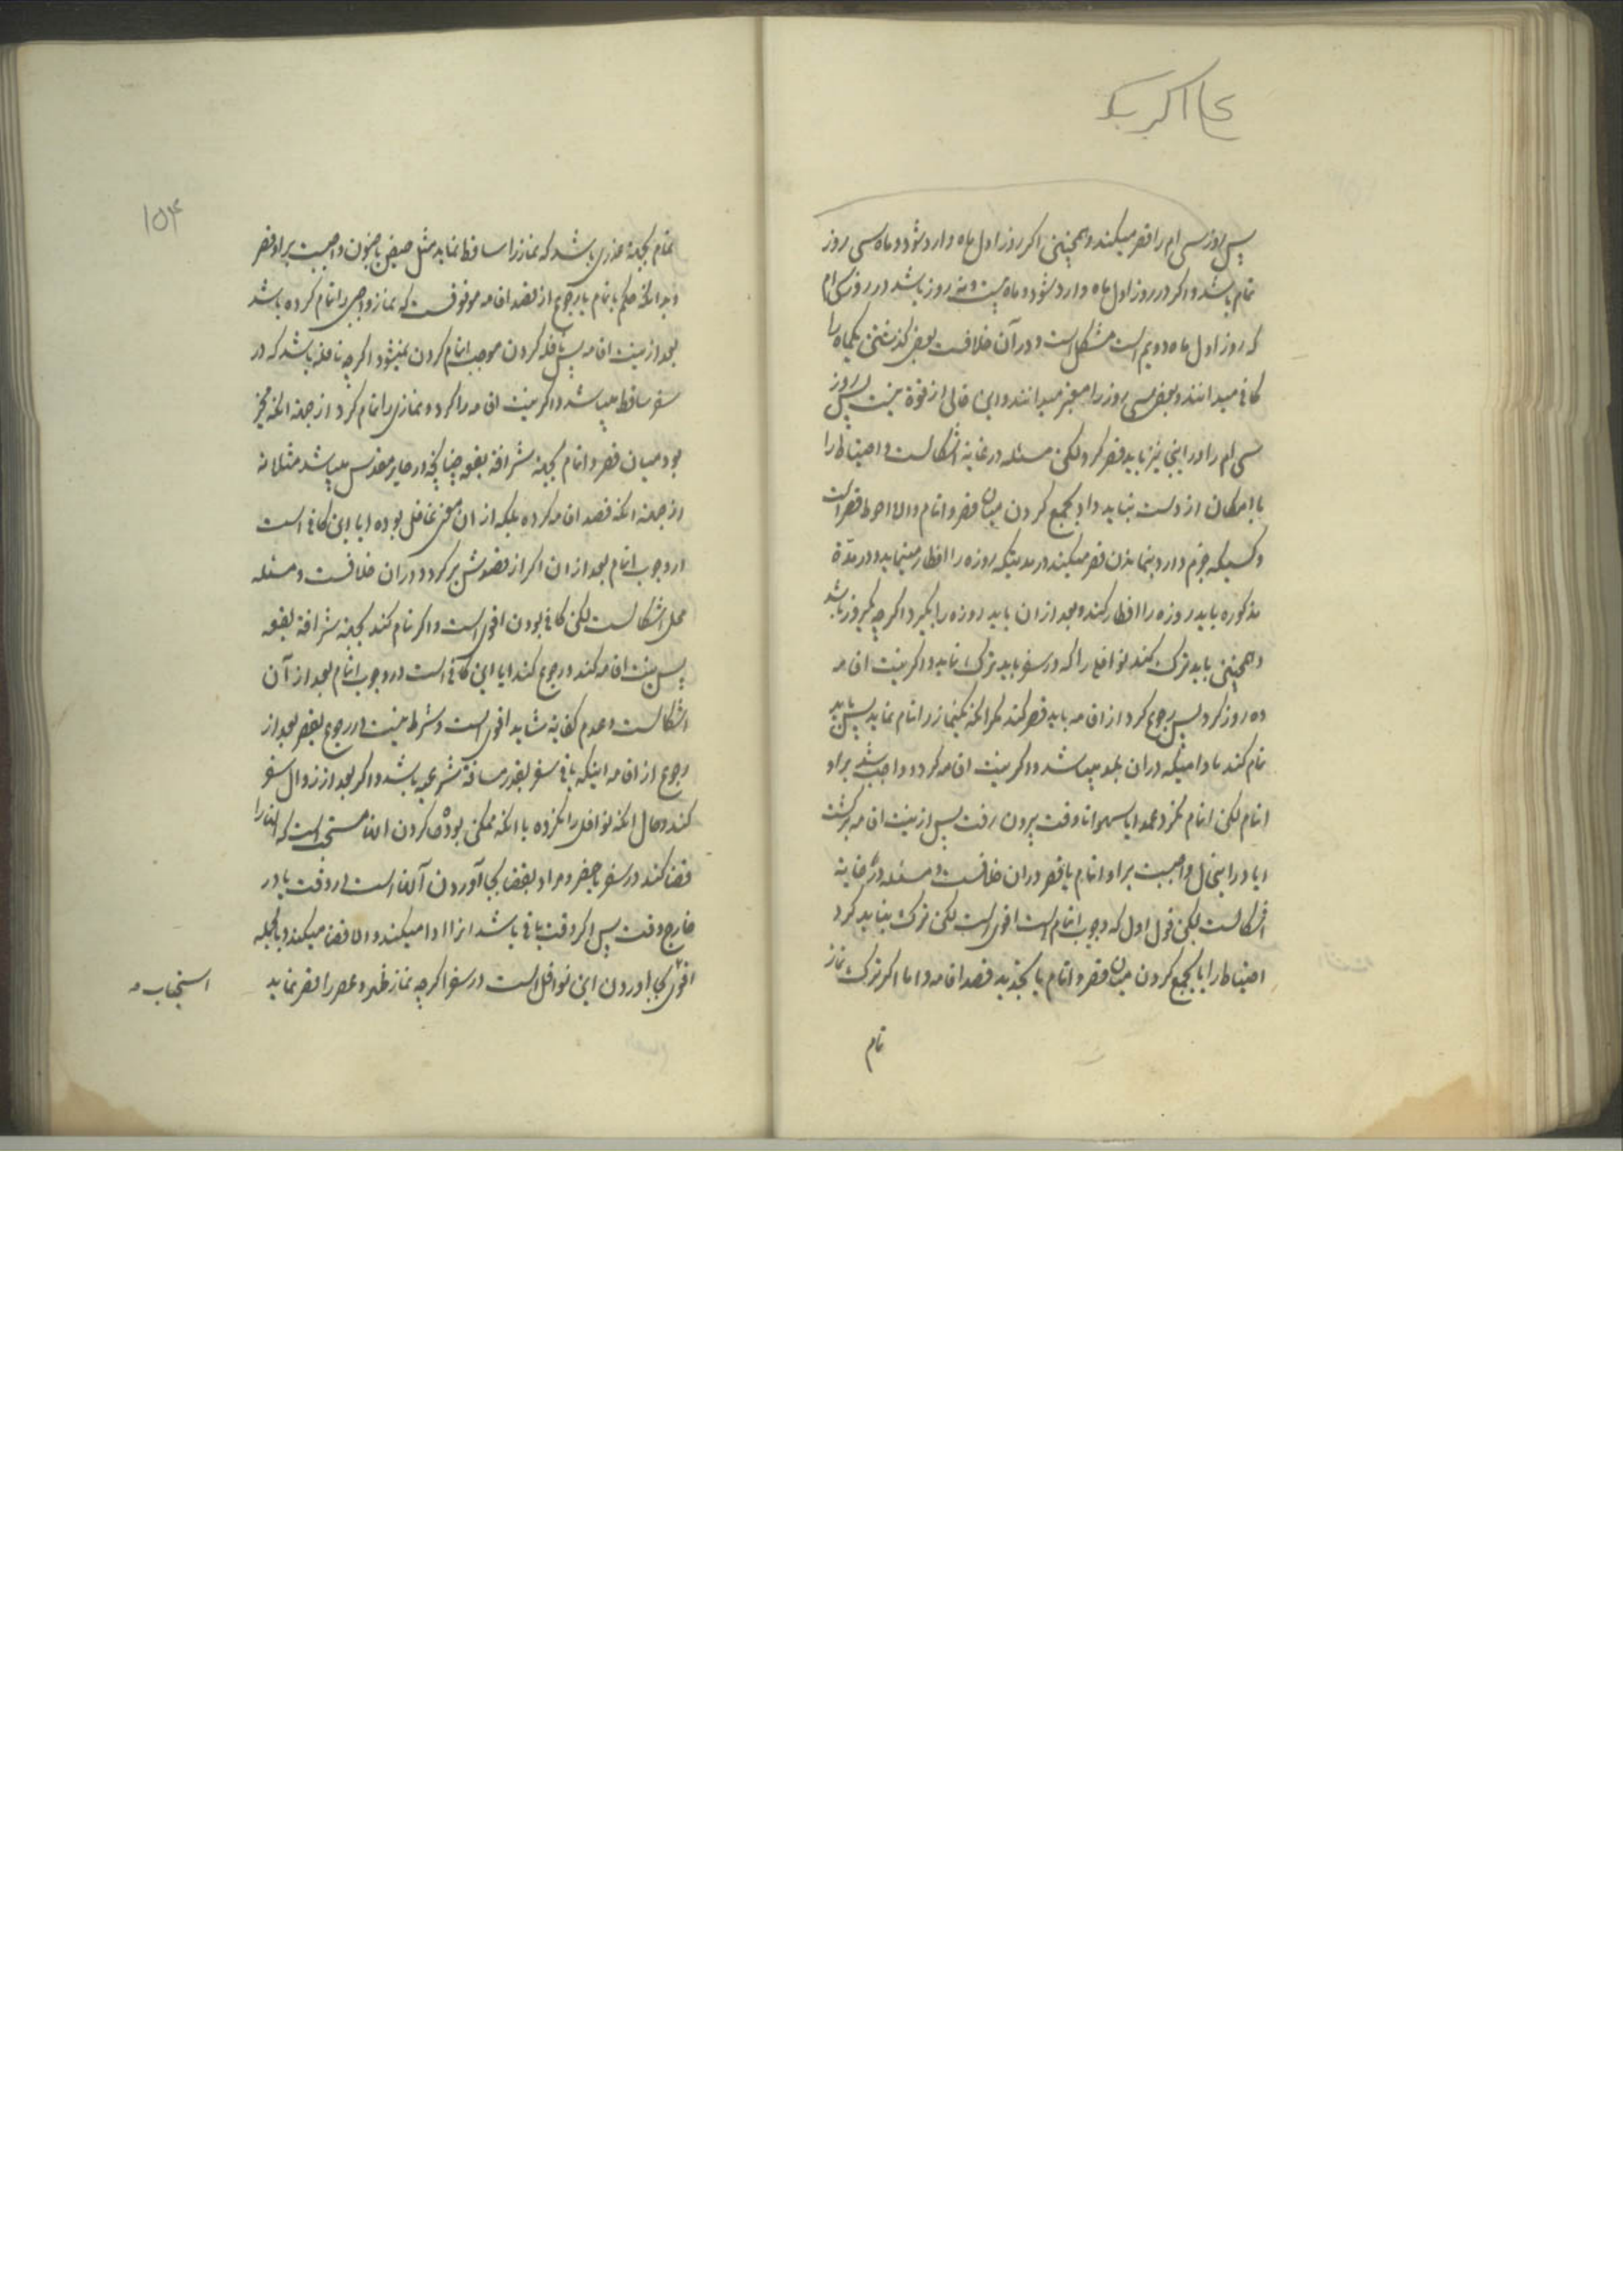 پس روز سی ام را قصر میکند و همچنین اکر روز اول ماه وارد شود و ماه سی روز
تمام باشد و اکر در روز اول ماه وارد شود و ماه بیست و نه روز باشد در روز سی ام
که روز اول ماه دویم است مشکل است و در آن خلافست بعضی کذشتن یکماه را
کافی میدانند و بعضی سی روز را معتبر میدانند و این خالی از قوة نیست پس روز
سی ام را در اینجا نیز باید قصر کرد لکن مسئله در غایة اشکالست و احتیاط را
با امکان از دست نباید داد بجمع کردن میان قصر و اتمام والا احوط قصر است
و کسیکه جزم دارد بنماندن قصر میکند در مدتیکه روزه را افطار مینماید و در مدّة
مذکوره باید روزه را افطار کند و بعد از ان باید روزه را بکیرد اکرچه یکروز باشد
و همچنین باید ترک کند نوافلی را که در سفر باید ترک نماید و اکر نیت اقامه
ده روز کرد پس رجوع کرد از اقامه باید قصر کند مکر انکه یکنماز را اتمام نماید پس باید
تمام کند مادامیکه در ان بلد میباشد و اکر نیت اقامه کرد و واجب شد بر او
اتمام لکن اتمام نکرد عمدا یا سهوا تا وقت بیرون رفت پس از نیت اقامه برکشت
ایا در اینحال واجبست بر او اتمام یا قصر در ان خلافست و مسئله در غایة
اشکالست لکن قول اول که وجوب اتمام است اقوی است لکن ترک نباید کرد
احتیاط را یا بجمع کردن میان قصر و اتمام یا بتجدید قصد اقامه و اما اکر ترک نماز
تمام
۱۵۴
تمام بجهة عذری باشد که نماز را ساقط نماید مثل حیض یا جنون واجبست بر او قصر
و بدانکه حکم باتمام با رجوع از قصد اقامه موقوفست که نماز واجبی را تمام کرده باشد
بعد از نیت اقامه پس نافله کردن موجب اتمام کردن نمیشود اکرچه نافلهٔ باشد که در
سفر ساقط میباشد و اکر نیت اقامه را کرد و نمازی را تمام کرد از جهة انکه مخیر
بود میان قصر و اتمام بجهة شرافة بقعه چنانچه در حایر مقدس میباشد مثلا نه
از جهة انکه قصد اقامه کرده بلکه از ان معنی غافل بوده ایا این کافی است
در وجوب اتمام بعد از ان اکر از قصدش برکردد در ان خلافست و مسئله
محل اشکالست لکن کافی بودن اقوی است و اکر تمام کند بجهة شرافة بقعه
پس نیت اقامه کند و رجوع کند ایا این کافی است در وجوب اتمام بعد از آن
اشکالست و عدم کفایة شاید اقوی است و شرط نیست در رجوع بقصر بعد از
رجوع از اقامه اینکه باقی سفر بقدر مسافة شرعیه باشد و اکر بعد از زوال سفر
کند و حال انکه نوافل را نکرده با انکه ممکن بودش کردن انها مستحبست که انها را
قضا کند در سفر یا حضر و مراد بقضا بجا آوردن آنها است در وقت یا در
خارج وقت پس اکر وقت باقی باشد انرا ادا میکند والا قضا میکند و بالجمله
اقوی بجا اوردن این نوافل است در سفر اکرچه نماز ظهر و عصر را قصر نماید
استحباب